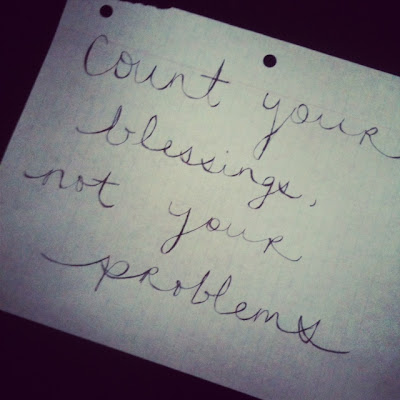 Count your
blessings,
not your
problems